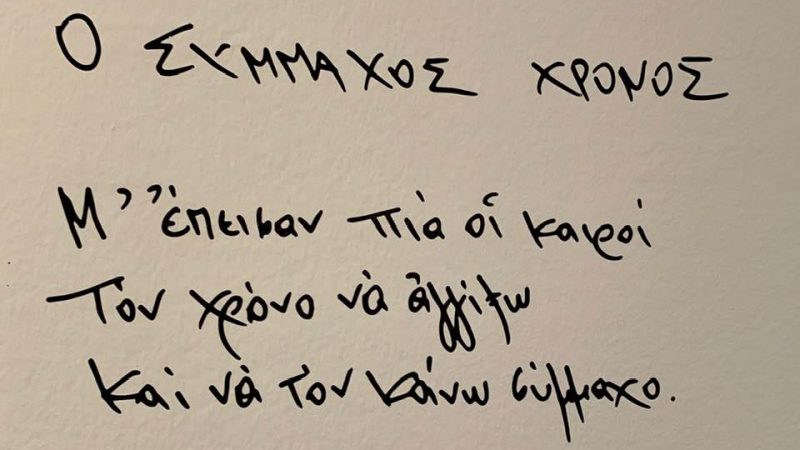 Ο ΣΥΜΜΑΧΟΣ ΧΡΟΝΟΣ
Μ' ἔπεισαν πιὰ οἱ καιροὶ
Τὸν χρόνο νὰ ἀγγίξω
Καὶ νὰ τὸν κάνω σύμμαχο.